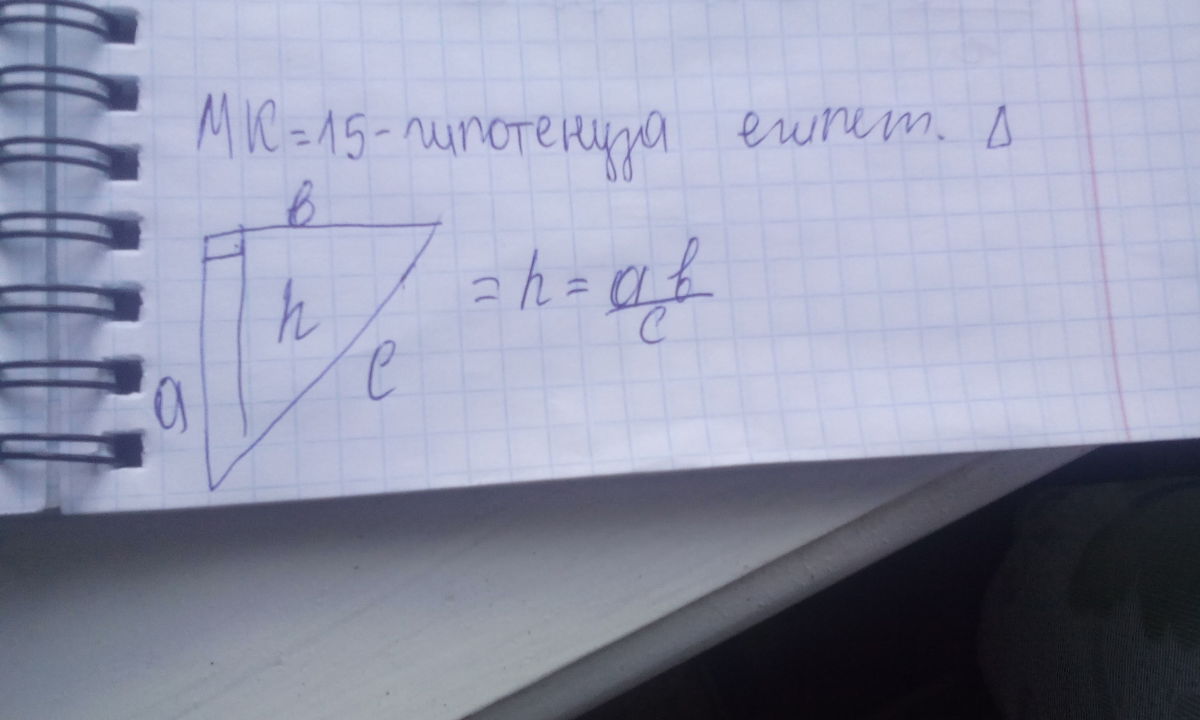 МК=15-гипотенуза египет. Δ
в
h
a
c
= h = ab/c